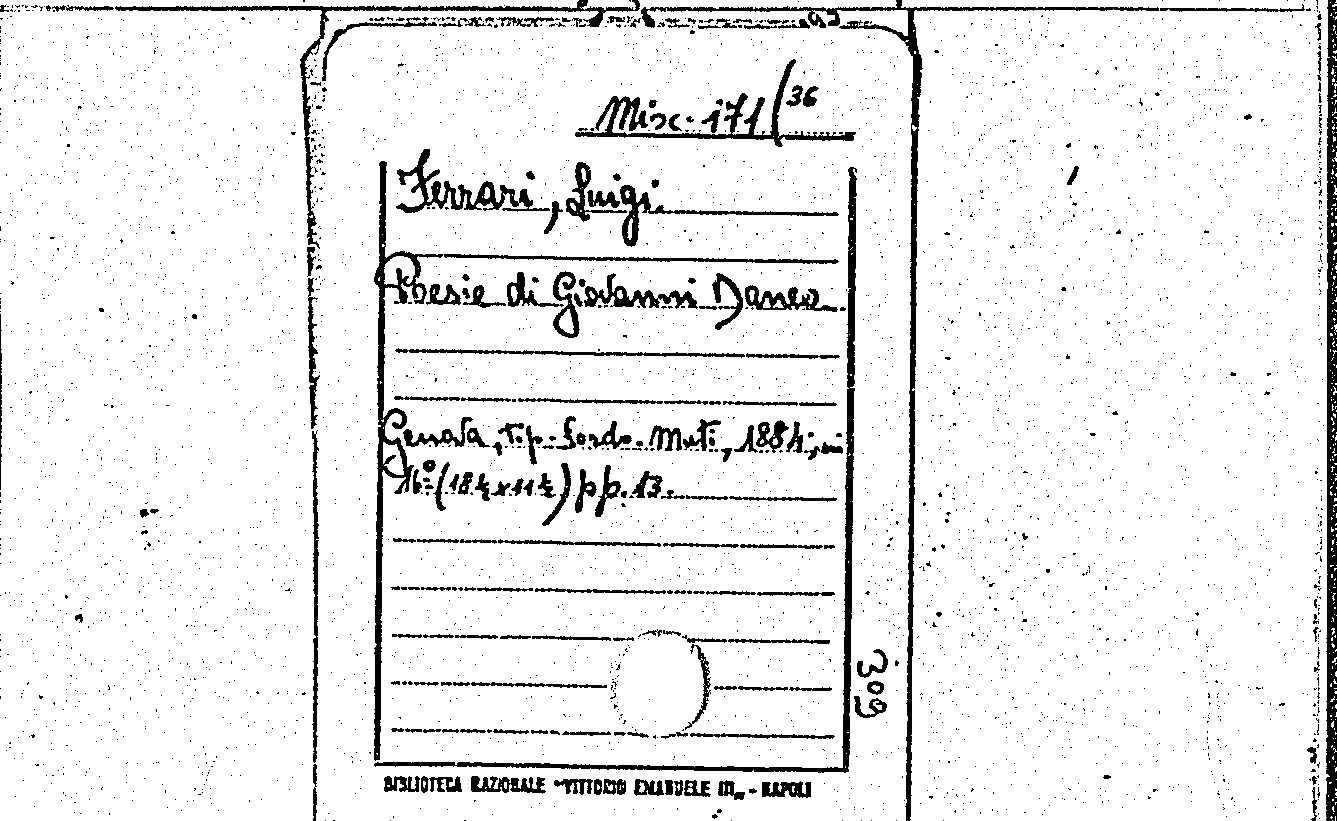 Misc. 171/36
Ferrari, Luigi.
Poesie di Giovanni Daneo
Genova, tip. Sordo-Muti, 1884; in
16º (18½ x 11½) pp. 13.
309
BIBLIOTECA NAZIONALE "VITTORIO EMANUELE III" - NAPOLI